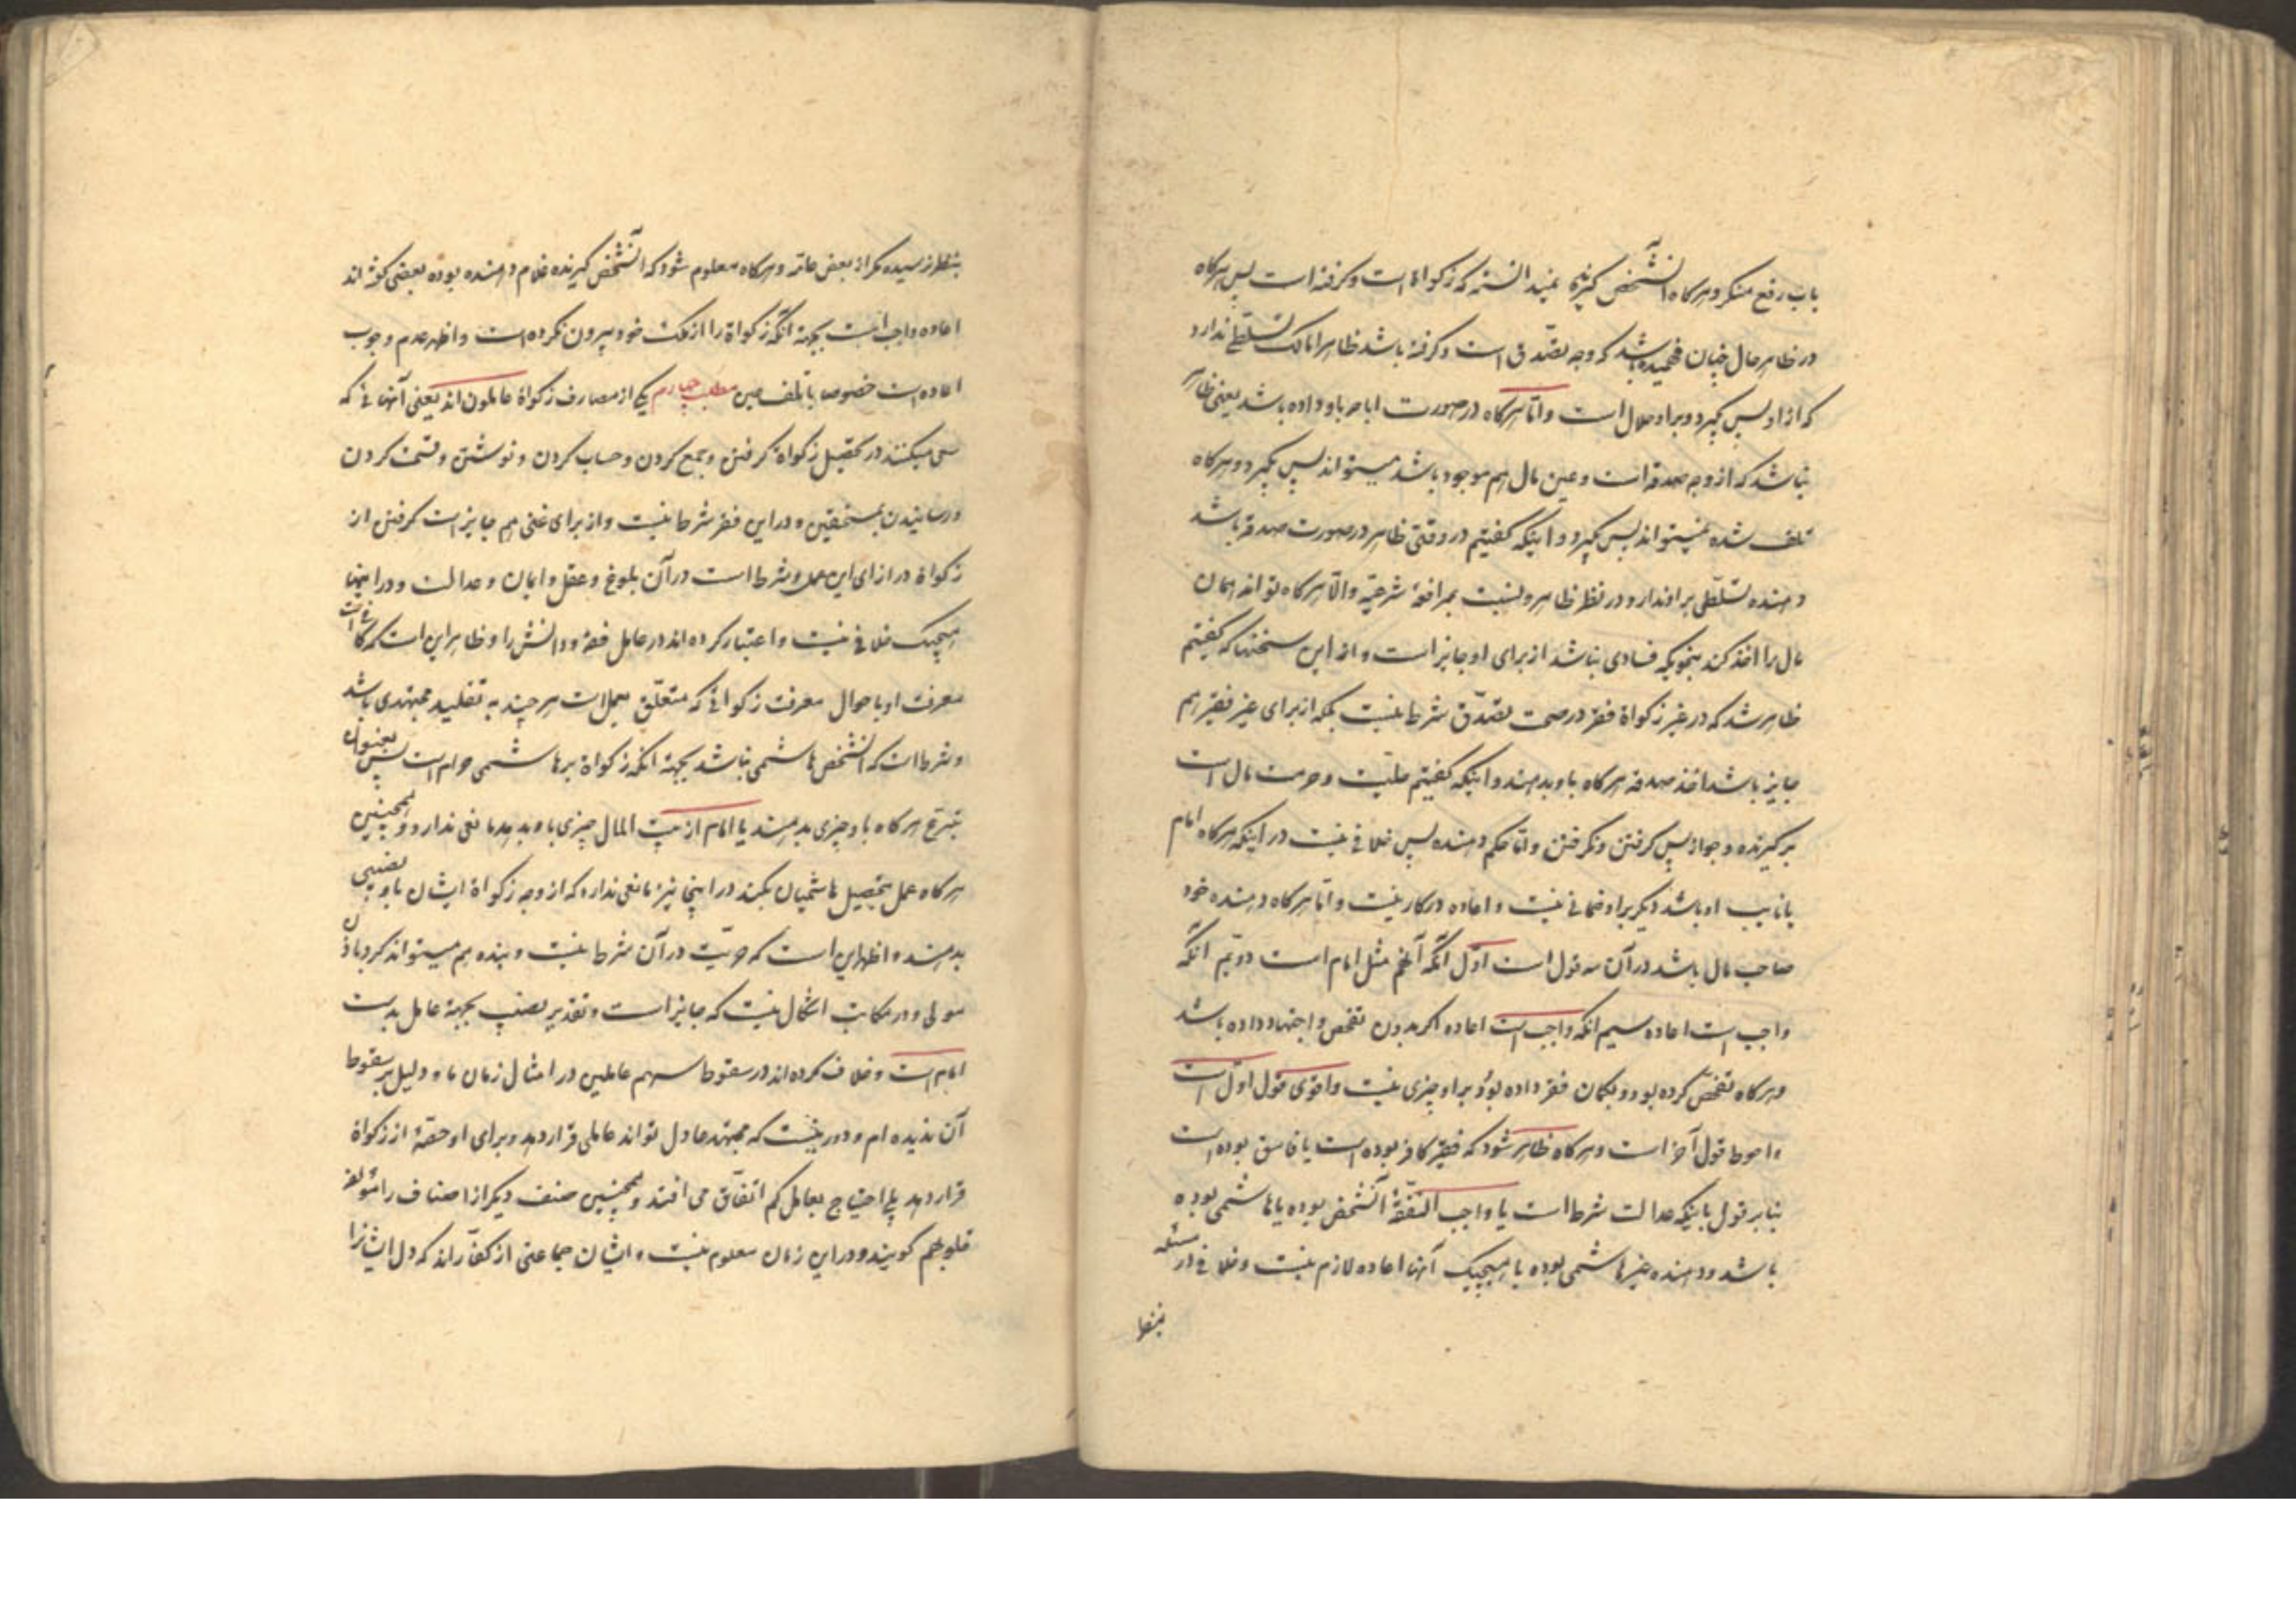 باب رفع منکر و هرکاه آنشخص کیرنده نمیدانسته که زکواة است و کرفته است پس هرکاه
در ظاهر حال چنان فهمیده باشد که وجه تصدق است و کرفته باشد ظاهرا مالک تسلطی ندارد
که از او پس بکیرد و بر او حلال است و امّا هرکاه در صورت اباحه باو داده باشد یعنی ظاهر
نباشد که از وجه صدقه است و عین مال هم موجود باشد میتواند پس بکیرد و هرکاه
تلف شده نمیتواند پس بکیرد و اینکه کفتیم در وقتی ظاهر در صورت صدقه باشد
دهنده تسلّطی بر او ندارد در نظر ظاهر و نسبت بمرافعهٔ شرعیّه و الّا هرکاه تواند همان
مال را اخذ کند بنحویکه فسادی نباشد از برای او جایز است و از این سخنها که کفتیم
ظاهر شد که در غیر زکواة فقر در صحت تصدّق شرط نیست بلکه از برای غیر فقیر هم
جایز باشد اخذ صدقه هرکاه باو بدهند و اینکه کفتیم حلیّت و حرمت مال است
بر کیرنده و جواز پس کرفتن و نکرفتن و امّا حکم دهنده پس خلافی نیست در اینکه هرکاه امام
یا نایب او باشد دیکر بر او ضمانی نیست و اعاده در کار نیست و امّا هرکاه دهنده خود
صاحب مال باشد در آن سه قول است اوّل آنکه آنهم مثل امام است دوّیم آنکه
واجب است اعاده سیم آنکه واجب است اعاده اکر بدون تفحص و اجتهاد داده باشد
و هرکاه تفحّص کرده بود و بکمان فقر داده بود بر او چیزی نیست و اقوی قول اوّل است
و احوط قول آخر است و هرکاه ظاهر شود که فقیر کافر بوده است یا فاسق بوده است
بنابر قول باینکه عدالت شرط است یا واجب النفقهٔ آنشخص بوده یا هاشمی بوده
باشد و دهنده غیر هاشمی بوده با هیچیک آنها اعاده لازم نیست و خلافی در مسئله
بنظر
بنظر نرسیده مکر از بعض عامّه و هرکاه معلوم شود که آنشخص کیرنده غلام دهنده بوده بعضی کفته اند
اعاده واجب است بجهة آنکه زکواة را از ملک خود بیرون نکرده است و اظهر عدم وجوب
اعاده است خصوص با تلف عین مطلب چهارم یکی از مصارف زکواة عاملون اند یعنی آنهائی که
سعی میکنند در تحصیل زکواة کرفتن و جمع کردن و حساب کردن و نوشتن و قسمت کردن
و رسانیدن بمستحقین و در این فقر شرط نیست و از برای غنی هم جایز است کرفتن از
زکواة در ازای این عمل و شرط است در آن بلوغ و عقل و ایمان و عدالت و در اینها
هیچیک خلافی نیست و اعتبار کرده اند در عامل فقه و دانش را و ظاهر این است که کافی است
معرفت او باحوال معرفت زکواتی که متعلّق بعمل است هر چند به تقلید مجتهدی باشد
و شرط است که آنشخص هاشمی نباشد بجهة آنکه زکواة بر هاشمی حرام است پس بعنوان
تبرّع هرکاه باو چیزی بدهند یا امام از بیت المال چیزی باو بدهد مانعی ندارد و همچنین
هرکاه عمل بتحصیل هاشمیان بکند در اینجا نیز مانعی ندارد که از وجه زکواة ایشان باو نصیبی
بدهند و اظهر این است که حریّت در آن شرط نیست و بنده هم میتواند کرد باذن
مولی و در مکاتب اشکال نیست که جایز است و تقدیر نصیب بجهة عامل بدست
امام است و خلاف کرده اند در سقوط سهم عاملین در امثال زمان ما و دلیل بر سقوط
آن ندیده ام و دور نیست که مجتهد عادل تواند عاملی قرار دهد و برای او حصّهٔ از زکواة
قرار دهد بلی احتیاج بعامل کم اتفّاق می افتد و همچنین صنف دیکر از اصناف را مؤلفة
قلوبهم کویند و در این زمان معلوم نیست و ایشان جماعتی از کفّارند که دل ایشانرا